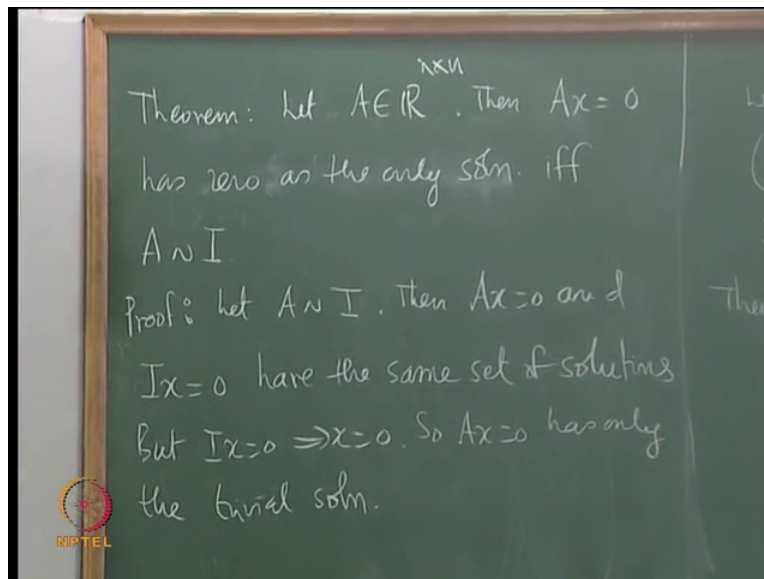 n×n
Theorem: Let A∈ℝ . Then Ax = 0
has zero as the only soln. iff
A ~ I
Proof: Let A ~ I. Then Ax=0 and
Ix=0 have the same set of solutions
But Ix=0 ⟹ x=0. So Ax=0 has only
the trivial soln.
The
NPTEL